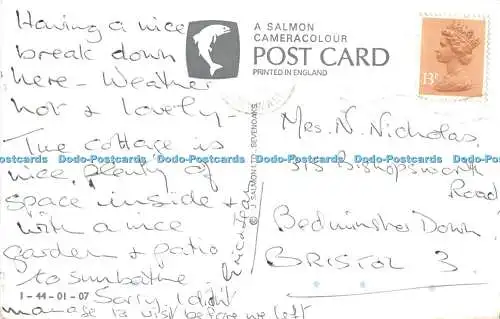 Having a nice
break down
here - Weather
hot & lovely -
The cottage is
nice, plenty of
space inside &
with a nice
garden & patio
to sunbathe
1-44-01-07
Sorry I didn't
manage to visit before we left
A SALMON
CAMERACOLOUR
POST CARD
PRINTED IN ENGLAND
13P
© J SALMON LTD., SEVENOAKS
Mrs. N. Nicholas,
313 Bishopsworth
Road
Bedminster Down
BRISTOL 3.
Dodo-Postcards Dodo-Postcards Dodo-Postcards Dodo-Postcards Dodo-Postcards